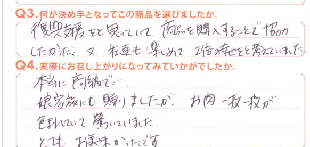 Q3.何が決め手となってこの商品を選びましたか。
復興支援をと思っていて 商品を購入することで協力
したかった。又 お年玉も楽しめる と考えていました
Q4.実際にお召し上がりになってみていかがでしたか。
本当に高級で…
娘家族にも贈りましたが、お肉一枚一枚が
包まれていて 驚いていました。
とても お美味かったです